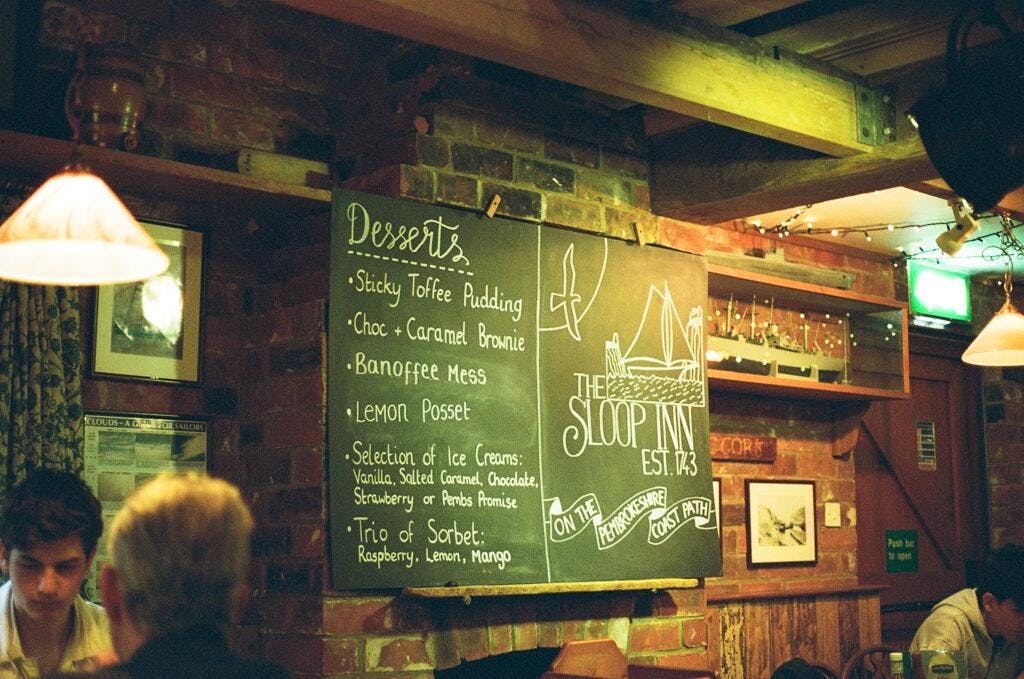 Desserts
• Sticky Toffee Pudding
• Choc + Caramel Brownie
• Banoffee Mess
• Lemon Posset
• Selection of Ice Creams:
Vanilla, Salted Caramel, Chocolate,
Strawberry or Pembs Promise
• Trio of Sorbet:
Raspberry, Lemon, Mango
THE
SLOOP INN
EST. 1743
ON THE
PEMBROKESHIRE
COAST PATH
CLOUDS - A GUIDE FOR SAILORS
Push bar
to open